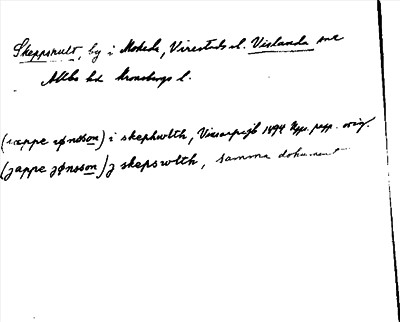 Skeppshult, by i Mokeda, Virestads sn. Vislanda sne
Allbo hd Kronobergs l.
(iæppe iønsson) i skephwlth, 1494 papp. orig.
(jappe jønsson) j skepswlth, samma dokument